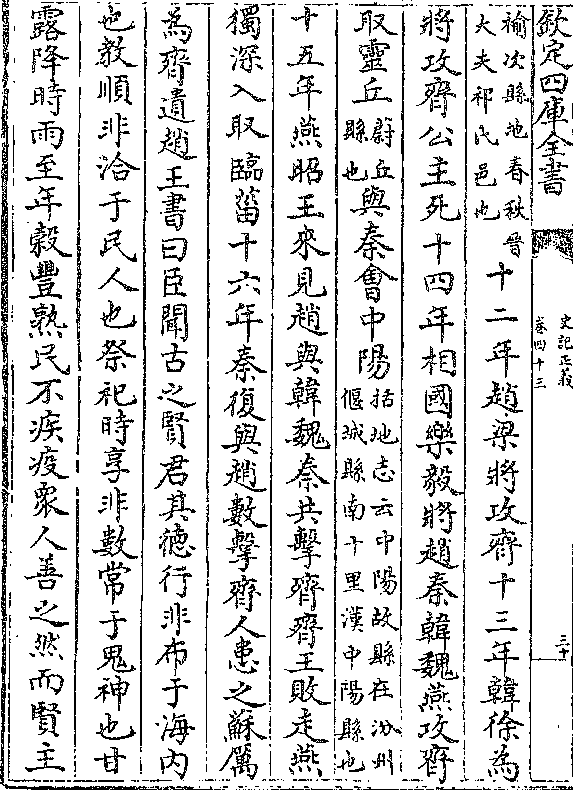 欽定四庫全書
史記正義
卷四十三
三十
榆次縣地春秋晉
大夫祁氏邑也
十二年趙梁將攻齊十三年韓徐為
將攻齊公主死十四年相國樂毅將趙秦韓魏燕攻齊
取靈丘
蔚丘
縣也
與秦會中陽
括地志云中陽故縣在汾州
偃城縣南十里漢中陽縣也
十五年燕昭王來見趙與韓魏秦共擊齊齊王敗走燕
獨深入取臨菑十六年秦復與趙數擊齊人患之蘇厲
為齊遺趙王書曰臣聞古之賢君其德行非布于海內
也教順非洽于民人也祭祀時享非數常于鬼神也甘
露降時雨至年穀豐熟民不疾疫眾人善之然而賢主